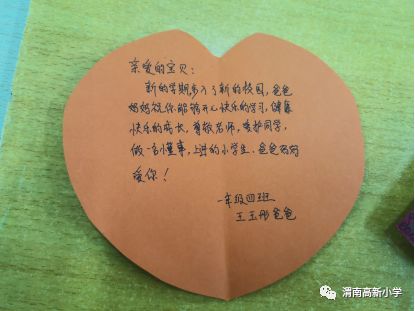 亲爱的宝贝：
新的学期,步入了新的校园,爸爸
妈妈祝你能够开心快乐的学习,健康
快乐的成长,尊敬老师,爱护同学,
做一名懂事,上进的小学生.爸爸妈妈
爱你！
一年级四班
王玉彤爸爸
渭南高新小学